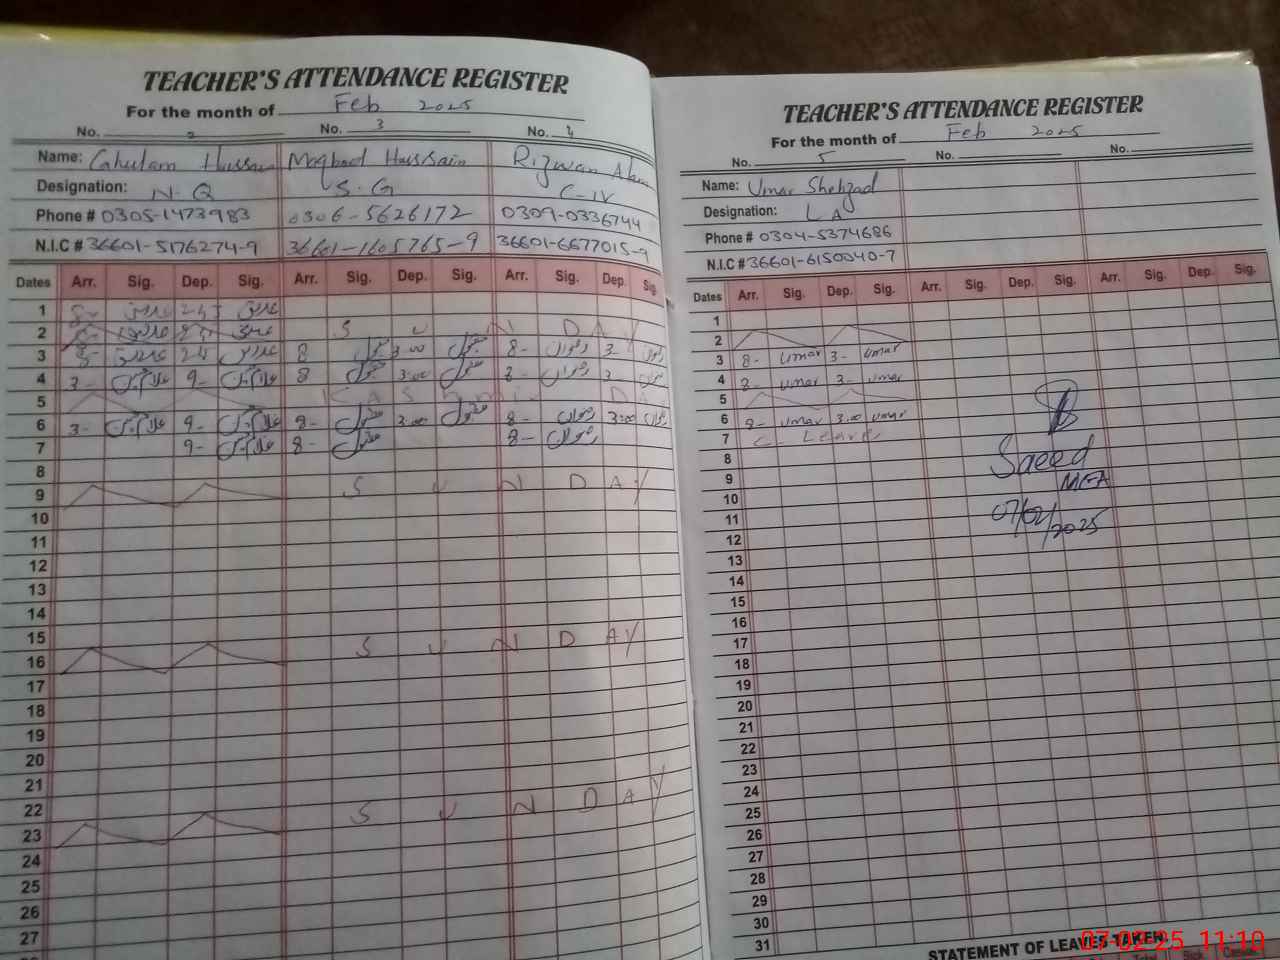 TEACHER'S ATTENDANCE REGISTER
For the month of Feb 2025
No. 2 No. 3 No. 4
Name: Gahulam Hussain Maqbool Hussain Rizwan Alam
Designation: N.Q S.G C-IV
Phone # 0305-1473983 0306-5626172 0309-0336744
N.I.C # 36601-5176274-9 36601-1605765-9 36601-6677015-9
Dates Arr. Sig. Dep. Sig. Arr. Sig. Dep. Sig. Arr. Sig. Dep. Sig.
1
2 S U N D A Y
3 8 مقبول 3.00 مقبول 8- رضوان 3- رضوان
4 3- 9- 8 مقبول 3.00 مقبول 8- رضوان 3 رضوان
5 D A
6 3- 9- 8- مقبول 3.00 مقبول 8- رضوان 3.00 رضوان
7 9- 8- مقبول 8- رضوان
8
9 S U N D A Y
10
11
12
13
14
15
16 S U N D A Y
17
18
19
20
21
22
23 S U N D A Y
24
25
26
27
TEACHER'S ATTENDANCE REGISTER
For the month of Feb 2025
No. 5 No. No.
Name: Umar Shehzad
Designation: L A
Phone # 0304-5374686
N.I.C # 36601-6150040-7
Dates Arr. Sig. Dep. Sig. Arr. Sig. Dep. Sig. Arr. Sig. Dep. Sig.
1
2
3 8- umar 3- umar
4 8- umar 3- umar
5
6 8- umar 3.00 umar
7 C- Leave
8
9
10
11
12
13
14
15
16
17
18
19
20
21
22
23
24
25
26
27
28
29
30
31
Saeed
MEA
07/02/2025
STATEMENT OF LEAVES TAKEN
07-02-25 11:10